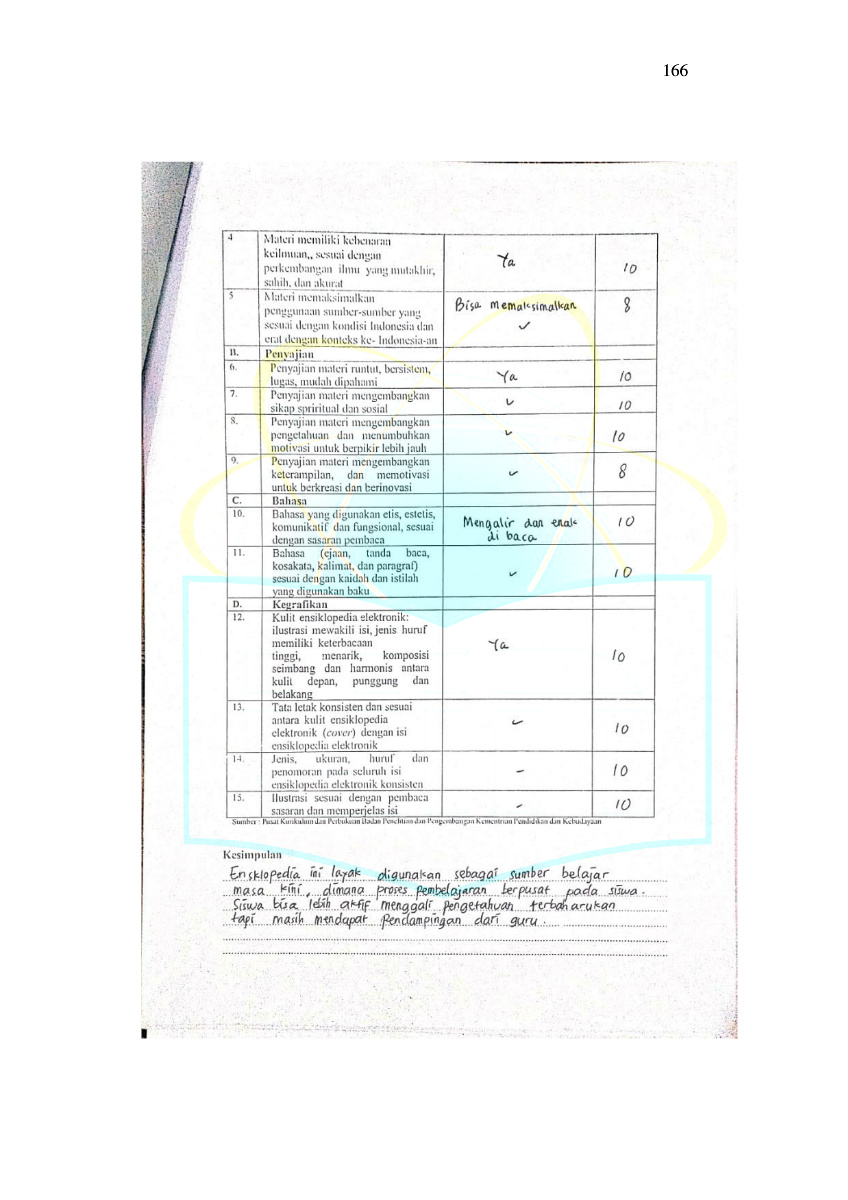 166
4 Materi memiliki kebenaran
keilmuan,, sesuai dengan
perkembangan ilmu yang mutakhir,
sahih, dan akurat
Ya
10
5 Materi memaksimalkan
penggunaan sumber-sumber yang
sesuai dengan kondisi Indonesia dan
erat dengan konteks ke- Indonesia-an
Bisa memaksimalkan
✓
8
B. Penyajian
6. Penyajian materi runtut, bersistem,
lugas, mudah dipahami
Ya
10
7. Penyajian materi mengembangkan
sikap spriritual dan sosial
✓
10
8. Penyajian materi mengembangkan
pengetahuan dan menumbuhkan
motivasi untuk berpikir lebih jauh
✓
10
9. Penyajian materi mengembangkan
keterampilan, dan memotivasi
untuk berkreasi dan berinovasi
✓
8
C. Bahasa
10. Bahasa yang digunakan etis, estetis,
komunikatif dan fungsional, sesuai
dengan sasaran pembaca
Mengalir dan enak
di baca
10
11. Bahasa (ejaan, tanda baca,
kosakata, kalimat, dan paragraf)
sesuai dengan kaidah dan istilah
yang digunakan baku
✓
10
D. Kegrafikan
12. Kulit ensiklopedia elektronik:
ilustrasi mewakili isi, jenis huruf
memiliki keterbacaan
tinggi, menarik, komposisi
seimbang dan harmonis antara
kulit depan, punggung dan
belakang
Ya
10
13. Tata letak konsisten dan sesuai
antara kulit ensiklopedia
elektronik (cover) dengan isi
ensiklopedia elektronik
✓
10
14. Jenis, ukuran, huruf dan
penomoran pada seluruh isi
ensiklopedia elektronik konsisten
✓
10
15. Ilustrasi sesuai dengan pembaca
sasaran dan memperjelas isi
✓
10
Sumber : Pusat Kurikulum dan Perbukuan Badan Penelitian dan Pengembangan Kementrian Pendidikan dan Kebudayaan
Kesimpulan
Ensklopedia ini layak digunakan sebagai sumber belajar
masa kini, dimana proses pembelajaran berpusat pada siswa.
Siswa bisa lebih aktif menggali pengetahuan terbaharukan
tapi masih mendapat pendampingan dari guru.